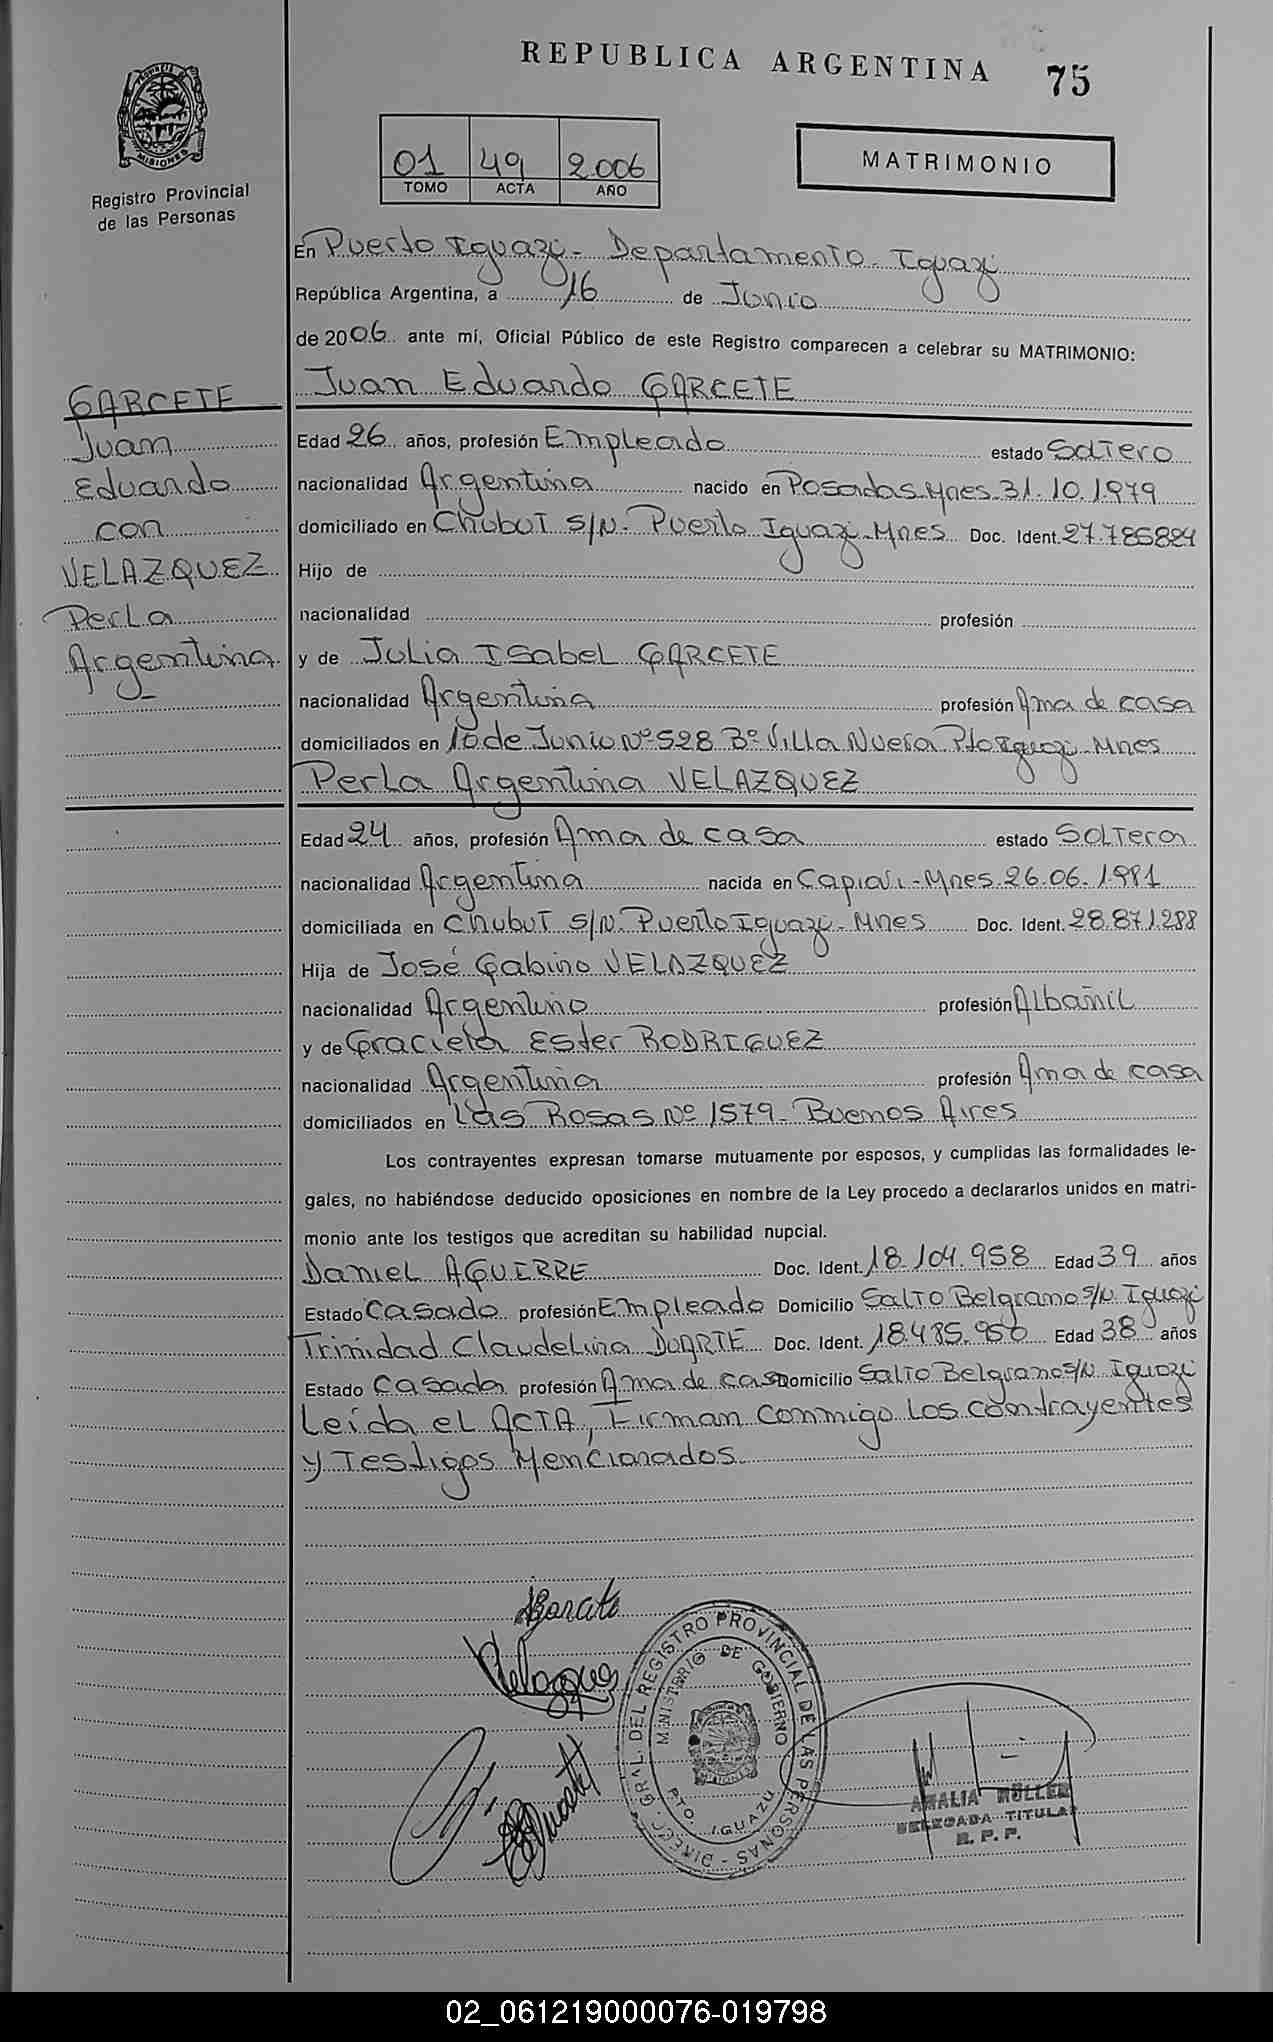 REPUBLICA ARGENTINA 75
MISIONES
Registro Provincial
de las Personas
01 49 2.006
TOMO ACTA AÑO
MATRIMONIO
En Puerto Iguazú - Departamento - Iguazú
República Argentina, a 16 de Junio
de 2006 ante mí, Oficial Público de este Registro comparecen a celebrar su MATRIMONIO:
Juan Eduardo GARCETE
GARCETE
Juan
Eduardo
con
VELAZQUEZ
Perla
Argentina
Edad 26 años, profesión Empleado estado Soltero
nacionalidad Argentina nacido en Posadas-Mnes. 31.10.1979
domiciliado en Chubut S/N. Puerto Iguazú-Mnes Doc. Ident. 27.785824
Hijo de
nacionalidad profesión
y de Julia Isabel GARCETE
nacionalidad Argentina profesión Ama de casa
domiciliados en 10 de Junio Nº 528 Bº Villa Nueva Pto Iguazú-Mnes
Perla Argentina VELAZQUEZ
Edad 24 años, profesión Ama de casa estado Soltera
nacionalidad Argentina nacida en Capiovi-Mnes. 26.06.1981
domiciliada en Chubut S/N. Puerto Iguazú-Mnes Doc. Ident. 28.871.288
Hija de José Gabino VELAZQUEZ
nacionalidad Argentino profesión Albañil
y de Graciela Ester RODRIGUEZ
nacionalidad Argentina profesión Ama de casa
domiciliados en Las Rosas Nº 1579 - Buenos Aires
Los contrayentes expresan tomarse mutuamente por esposos, y cumplidas las formalidades le-
gales, no habiéndose deducido oposiciones en nombre de la Ley procedo a declararlos unidos en matri-
monio ante los testigos que acreditan su habilidad nupcial.
Daniel AGUIRRE Doc. Ident. 18.104.958 Edad 39 años
Estado Casado profesión Empleado Domicilio Salto Belgrano S/N Iguazú
Trinidad Claudelina DUARTE Doc. Ident. 18.485.950 Edad 38 años
Estado Casada profesión Ama de casa Domicilio Salto Belgrano S/N Iguazú
Leída el ACTA, Firman conmigo los contrayentes
y Testigos Mencionados
Velazquez
DIRECC. GRAL. DEL REGISTRO PROVINCIAL DE LAS PERSONAS
MINISTERIO DE GOBIERNO
PTO. IGUAZU
AMALIA MÜLLER
DELEGADA TITULAR
R. P. P.
02_061219000076-019798